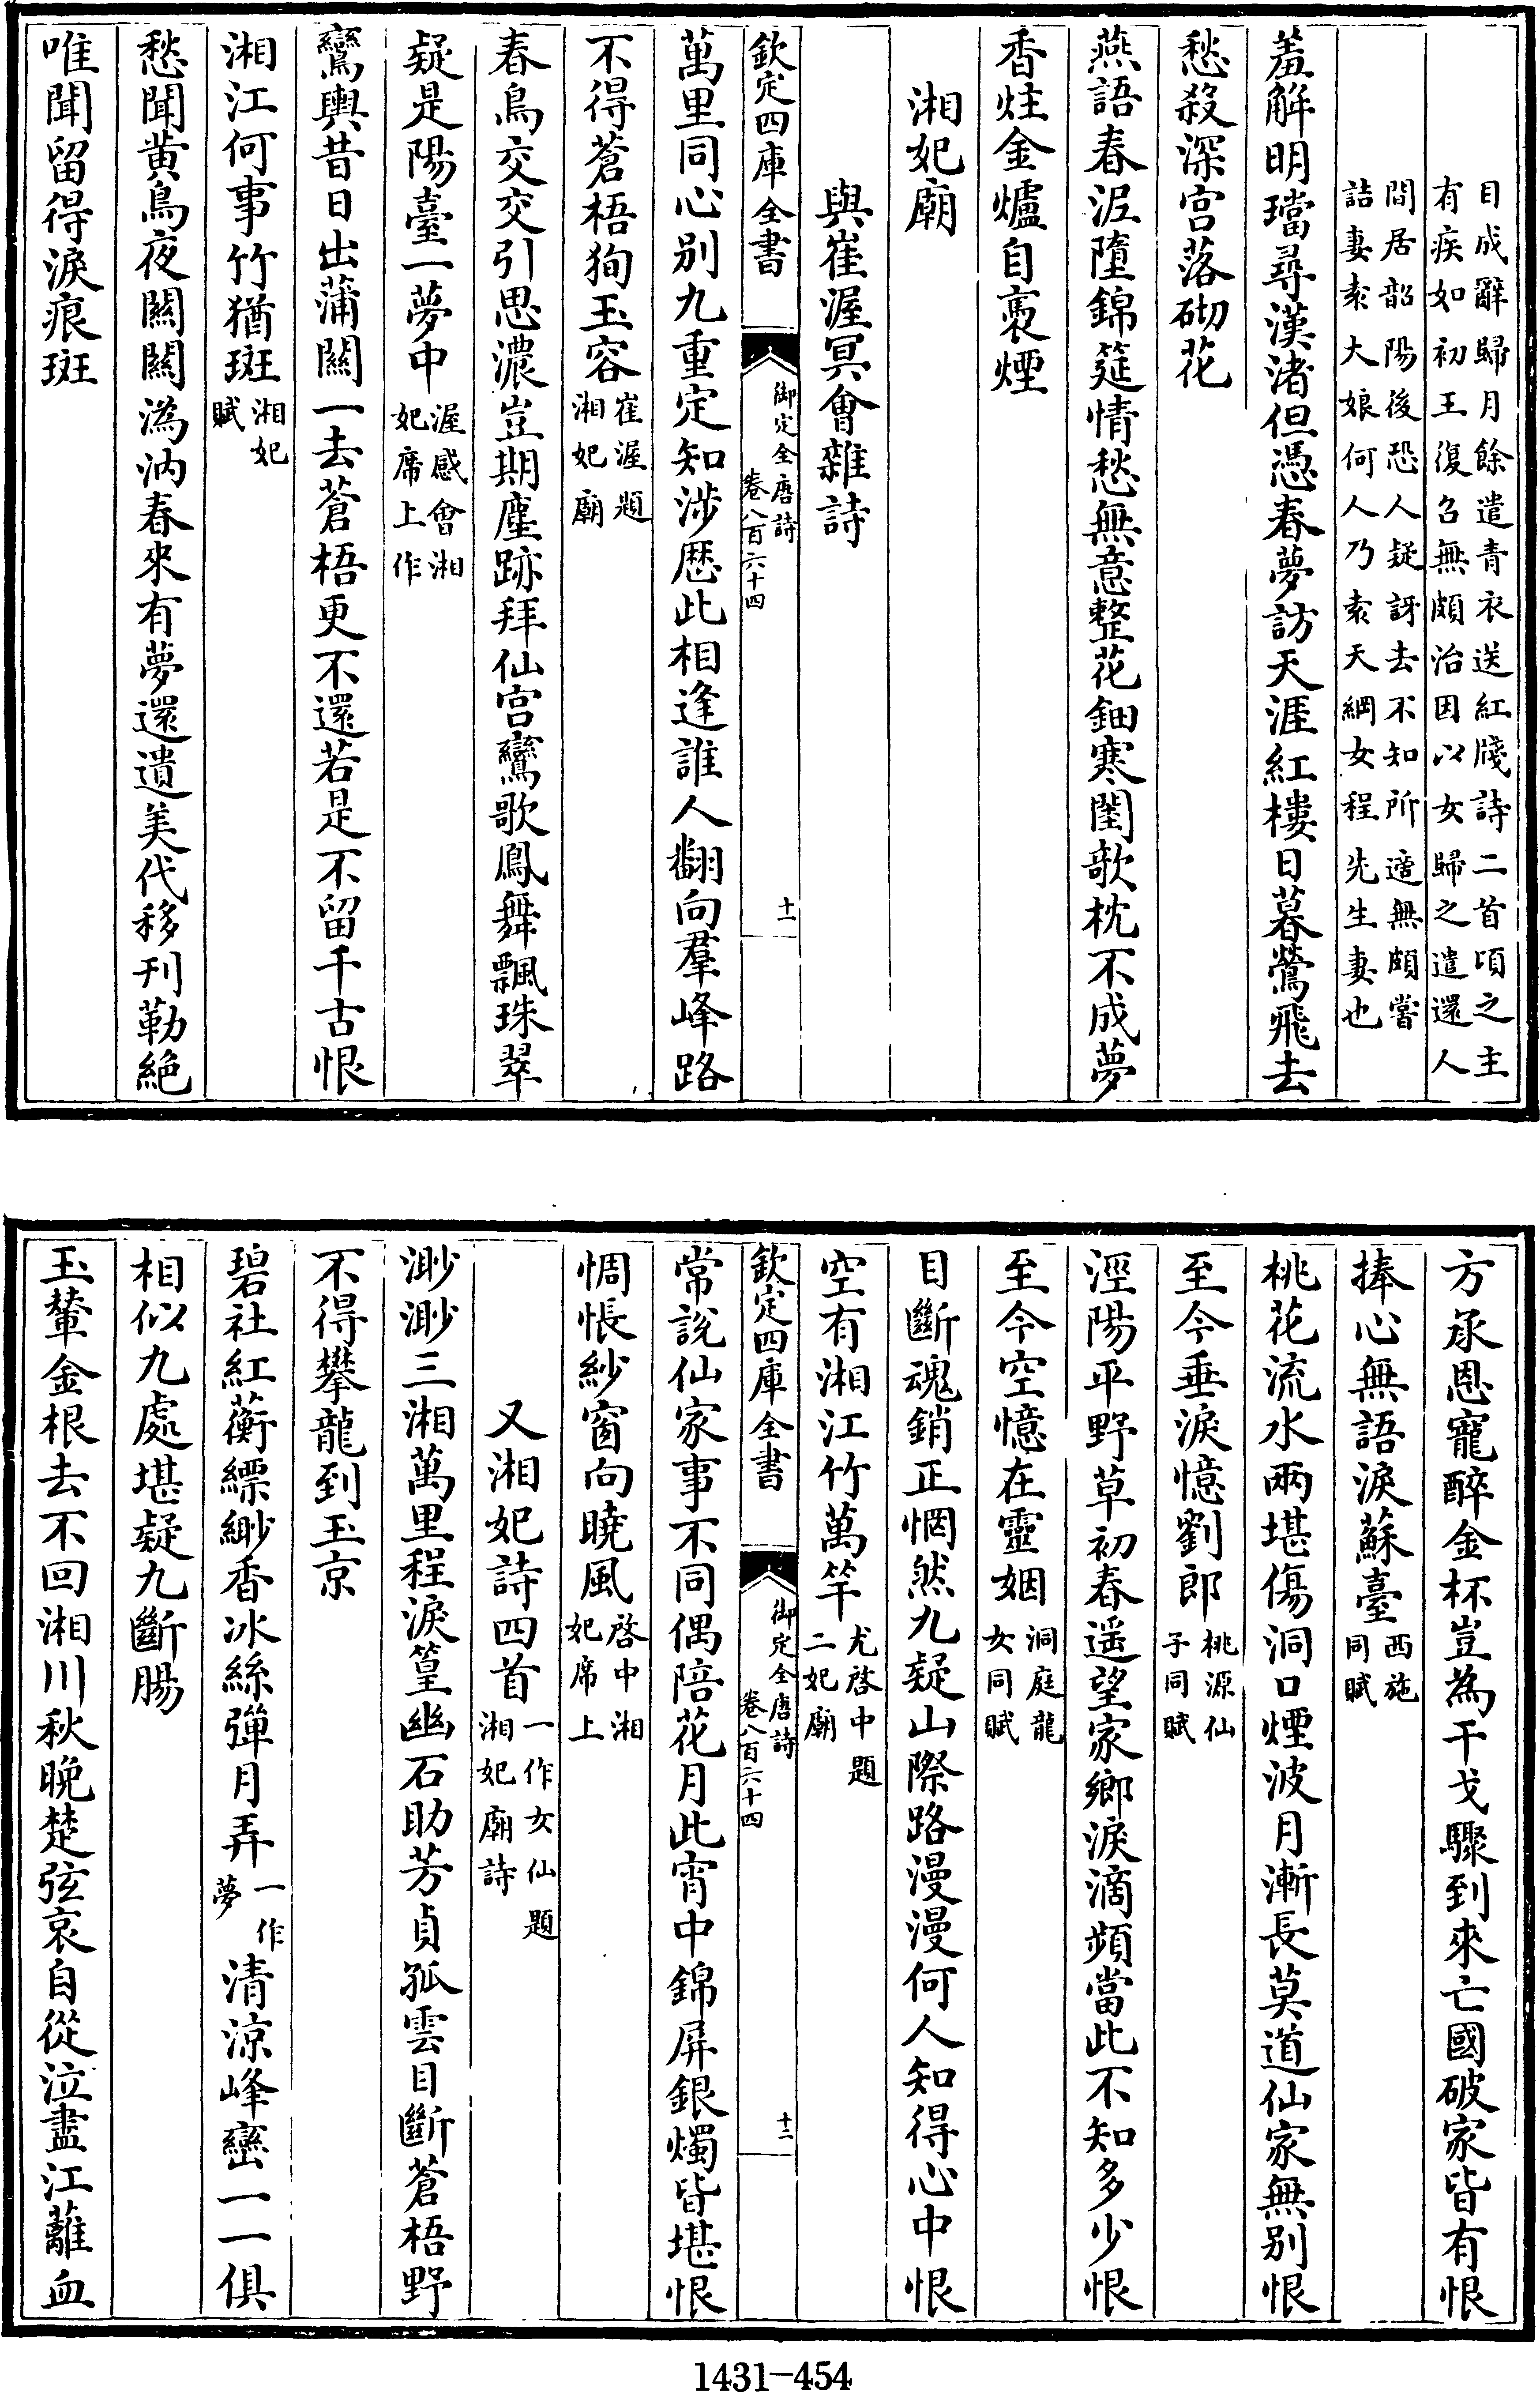 目成辭歸月餘遣青衣送紅牋詩二首頃之主
有疾如初王復召無頗治因以女歸之遣還人
間居韶陽後恐人疑訝去不知所適無頗嘗
詰妻索大娘何人乃索天綱女程先生妻也
羞解明璫尋漢渚但憑春夢訪天涯紅樓日暮鶯飛去
愁殺深宮落砌花
燕語春泥墮錦筵情愁無意整花鈿寒閨欹枕不成夢
香炷金爐自裛煙
湘妃廟
與崔渥冥會雜詩
欽定四庫全書
御定全唐詩
卷八百六十四
十一
萬里同心别九重定知涉歴此相逢誰人翻向羣峰路
不得蒼梧狥玉容
崔渥題
湘妃廟
春鳥交交引思濃豈期塵跡拜仙宫鸞歌鳳舞飄珠翠
疑是陽臺一夢中
渥感會湘
妃席上作
鸞輿昔日出蒲關一去蒼梧更不還若是不留千古恨
湘江何事竹猶斑
湘妃
賦
愁聞黄鳥夜關關溈汭春來有夢還遺美代移刋勒絶
唯聞留得淚痕斑
方承恩寵醉金杯豈為干戈驟到來亡國破家皆有恨
捧心無語淚蘇臺
西施
同賦
桃花流水兩堪傷洞口煙波月漸長莫道仙家無别恨
至今垂淚憶劉郎
桃源仙
子同賦
涇陽平野草初春遥望家鄉淚滴頻當此不知多少恨
至今空憶在靈姻
洞庭龍
女同賦
目斷魂銷正惘然九疑山際路漫漫何人知得心中恨
空有湘江竹萬竿
尤啓中題
二妃廟
欽定四庫全書
御定全唐詩
卷八百六十四
十二
常說仙家事不同偶陪花月此宵中錦屏銀燭皆堪恨
惆悵紗窗向曉風
啓中湘
妃席上
又湘妃詩四首
一作女仙題
湘妃廟詩
渺渺三湘萬里程淚篁幽石助芳貞孤雲目斷蒼梧野
不得攀龍到玉京
碧社紅蘅縹緲香冰絲彈月弄
一作
夢
清涼峰巒一一俱
相似九處堪疑九斷腸
玉輦金根去不回湘川秋晚楚弦哀自從泣盡江蘺血
1431-454